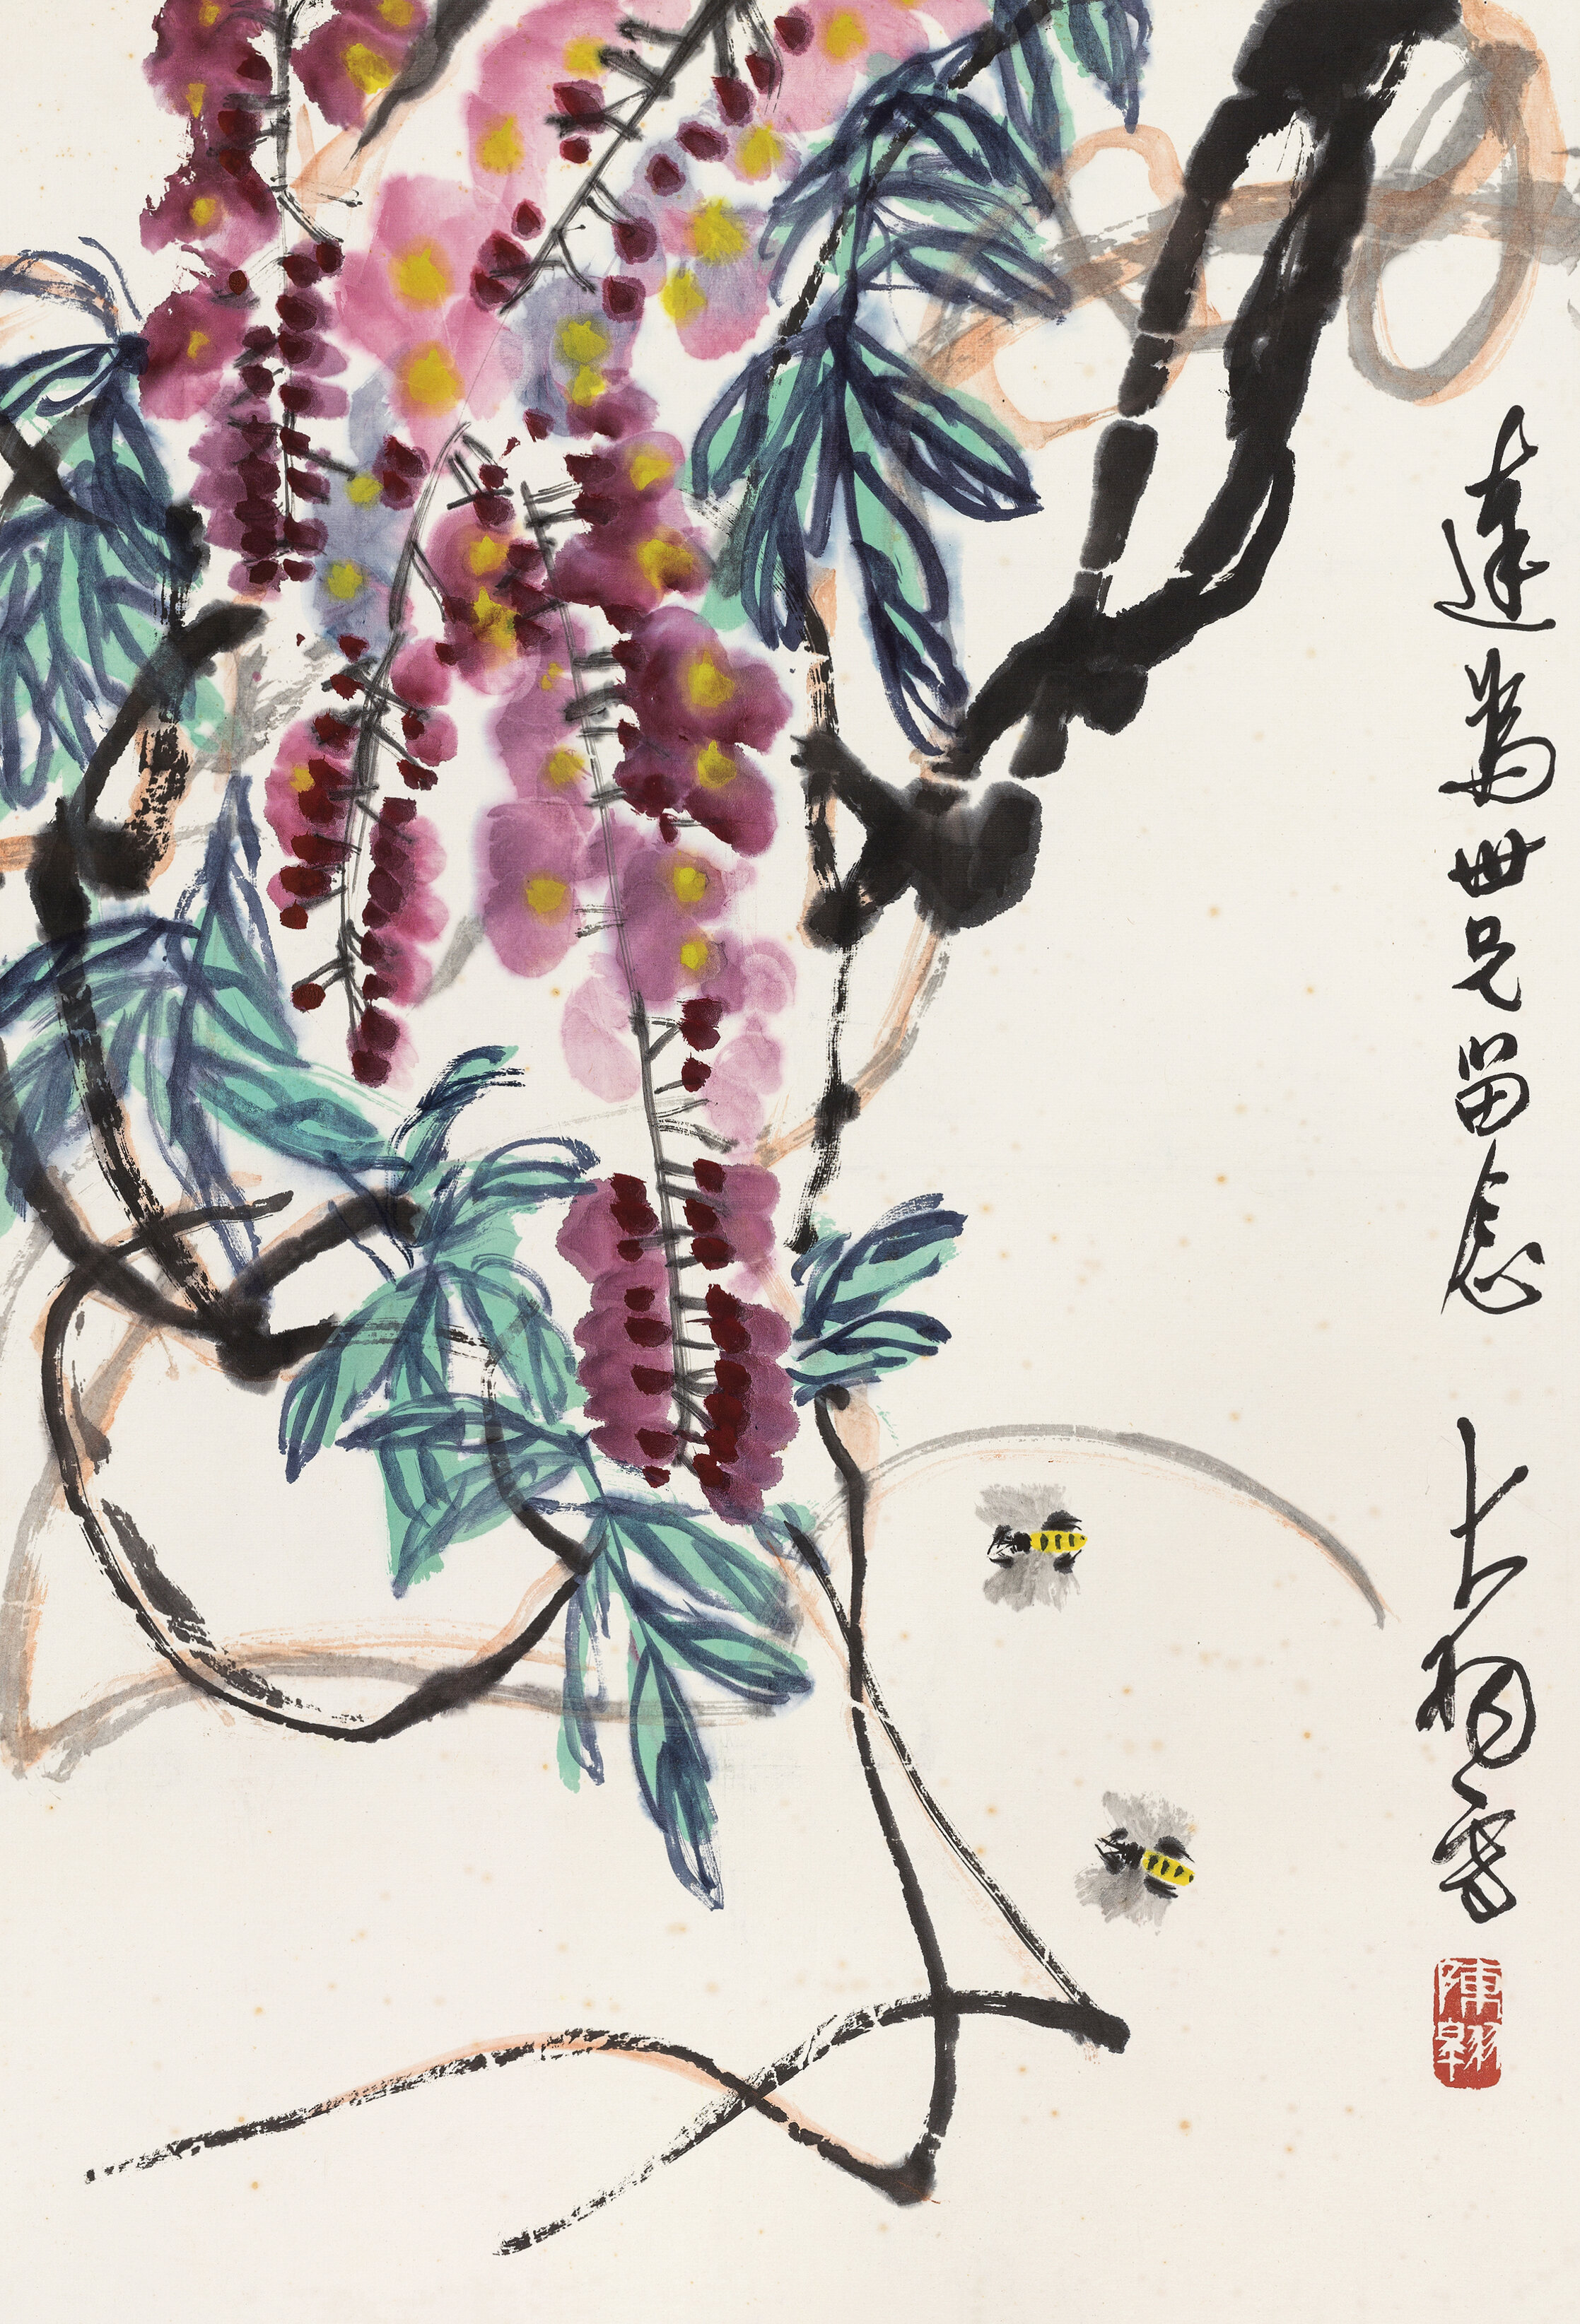 達為世兄留念
大羽寫
陳翱